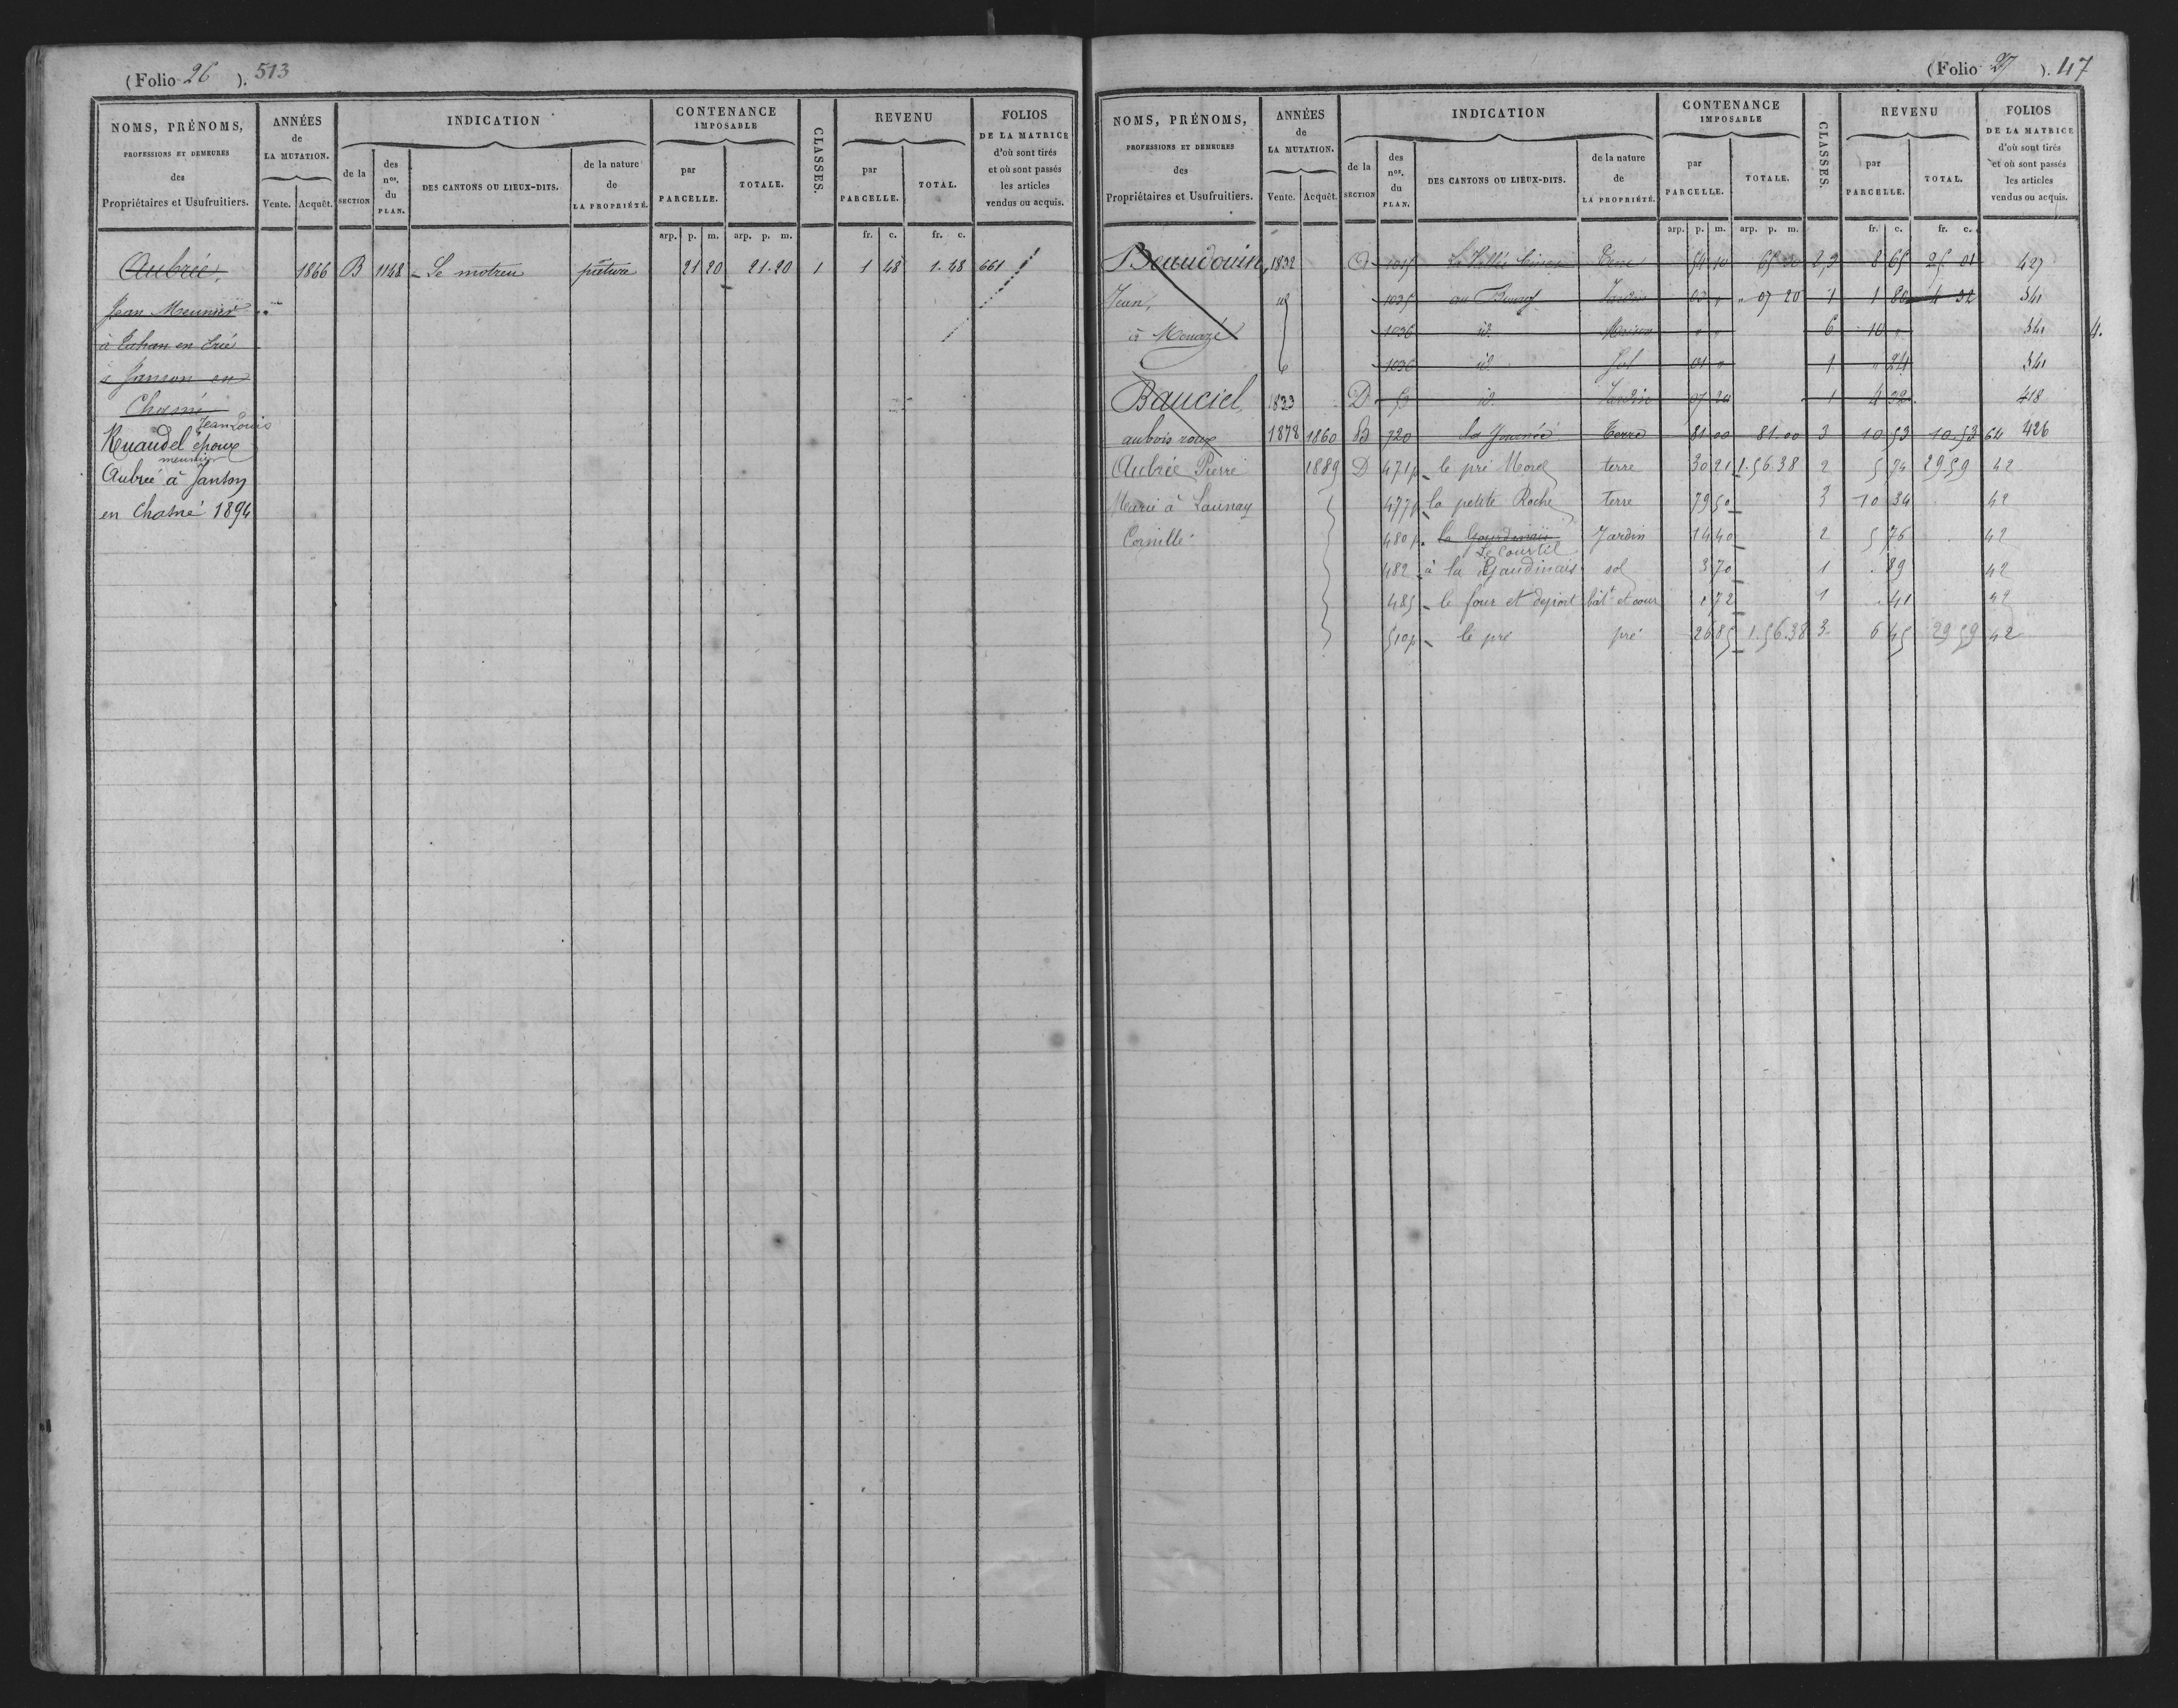 (Folio 26 ). 513
NOMS, PRÉNOMS,
PROFESSIONS ET DEMEURES
des
Propriétaires et Usufruitiers.
ANNÉES
de
LA MUTATION.
Vente. Acquêt.
INDICATION
de la
SECTION
des
nos.
du
PLAN.
DES CANTONS OU LIEUX-DITS.
de la nature
de
LA PROPRIÉTÉ.
CONTENANCE
IMPOSABLE
par
PARCELLE.
TOTALE.
CLASSES.
REVENU
par
PARCELLE.
TOTAL.
FOLIOS
DE LA MATRICE
d'où sont tirés
et où sont passés
les articles
vendus ou acquis.
arp. p. m. arp. p. m. fr. c. fr. c.
Aubrée, 1866 B 1148 Le motreu pâture 21 20 21.20 1 1 48 1.48 661
Jean Meunier
à en
à Janson en
Chasné
Jean Louis
Ruaudel époux
meunier
Aubrée à Janson
en Chasné 1894
(Folio 27 ). 47
NOMS, PRÉNOMS,
PROFESSIONS ET DEMEURES
des
Propriétaires et Usufruitiers.
ANNÉES
de
LA MUTATION.
Vente. Acquêt.
INDICATION
de la
SECTION
des
nos.
du
PLAN.
DES CANTONS OU LIEUX-DITS.
de la nature
de
LA PROPRIÉTÉ.
CONTENANCE
IMPOSABLE
par
PARCELLE.
TOTALE.
CLASSES.
REVENU
par
PARCELLE.
TOTAL.
FOLIOS
DE LA MATRICE
d'où sont tirés
et où sont passés
les articles
vendus ou acquis.
arp. p. m. arp. p. m. fr. c. fr. c.
Beaudouin 1832 1015 Terre 54 10 2,3 8 65 427
Jean, 1035 au Bourg Jardin 03 " " 07 20 1 1 80 4 32 341
à Mouazé 1036 id. Maison " " 6 10 " 341 4.
1036 id. Sol 01 " 1 " 24 341
Bauciel 1833 D 53 id. Jardin 07 20 1 4 32 418
aubois roux 1878 1860 B 720 la Journée Terre 81 00 81.00 3 10 53 10.53 64 426
Aubrée Pierre 1889 D 471p le pré Morel terre 30 21 1.56.38 2 5 74 29 59 42
Marie à Launay 477p la petite Roche terre 79 50 3 10 34 42
Cornillé 480p. la Gourdinais Jardin 14 40 2 5 76 42
Le Courtil
482 à la Gaudinais sol 3 70 1 . 89 42
485 le four et déport bât.t et cour . 72 1 . 41 42
510p le pré pré 26 85 1.56.38 3 6 45 29 59 42